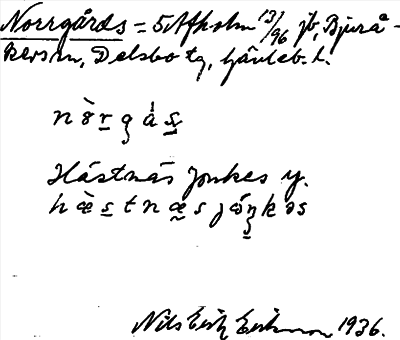 Norrgårds = 5 Afholm 13/96 jb, Bjuråkersn, Delsbo tg, Gävleb. l.
nòr̠gás̠
Hästnäs Jonkes y.
hæ̀s̠tnæs jóŋkəs
Nils Erik Eriksson 1936.